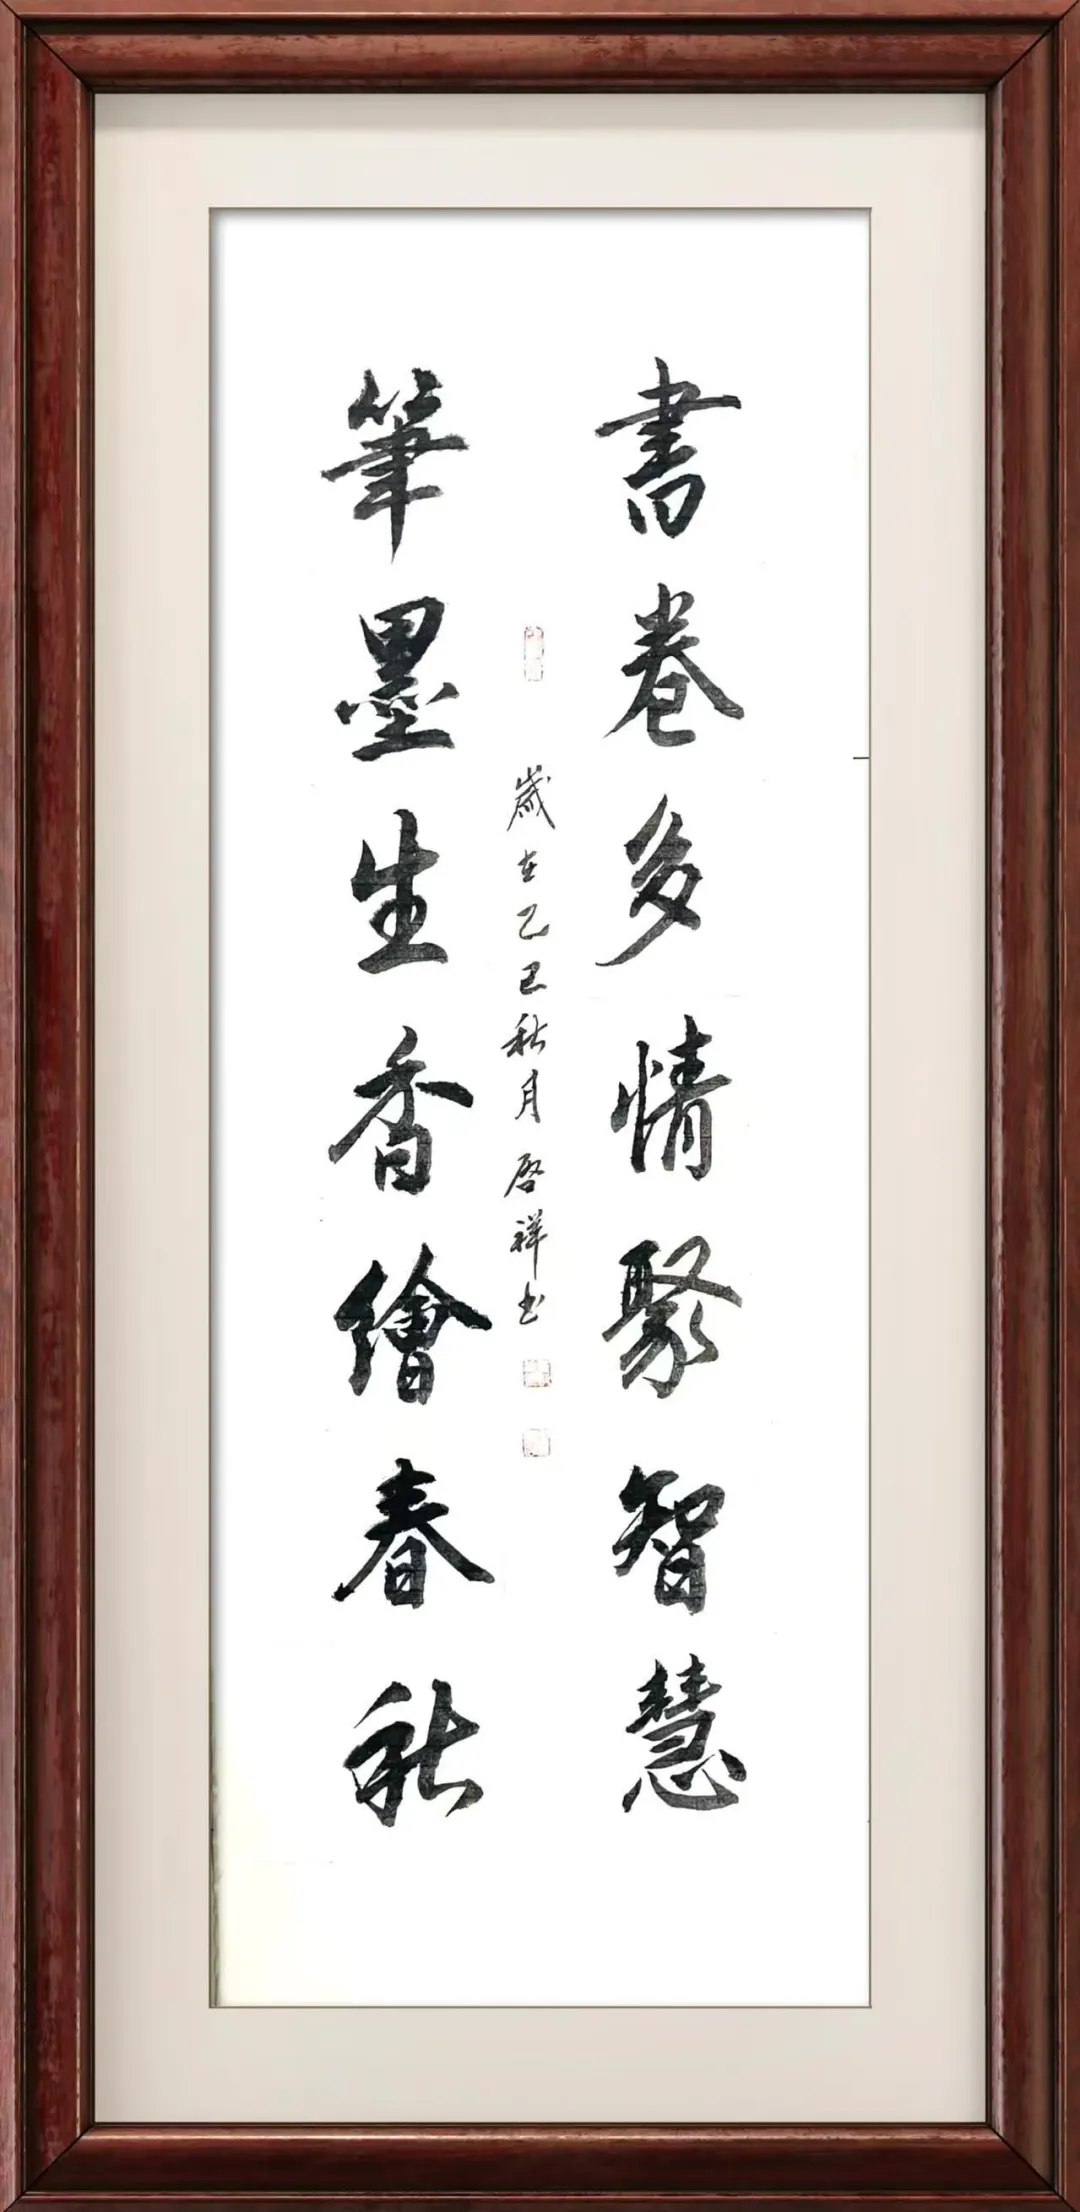 書卷多情聚智慧
筆墨生香繪春秋
歲在乙巳秋月啓祥书